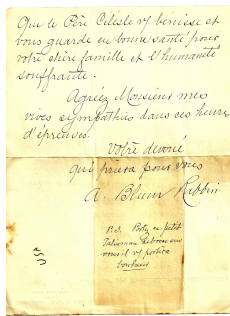 Que le Père Céleste vs bénisse et
vous garde en bonne santé pour
votre chère famille et l'humanité
souffrante.
Agréez Monsieur mes
vives sympathies dans ces heures
d'épreuves.
Votre dévoué
qui priera pour vous
A. Blum Rabbin
P.S. petit
Talisman
vs portera
bonheur